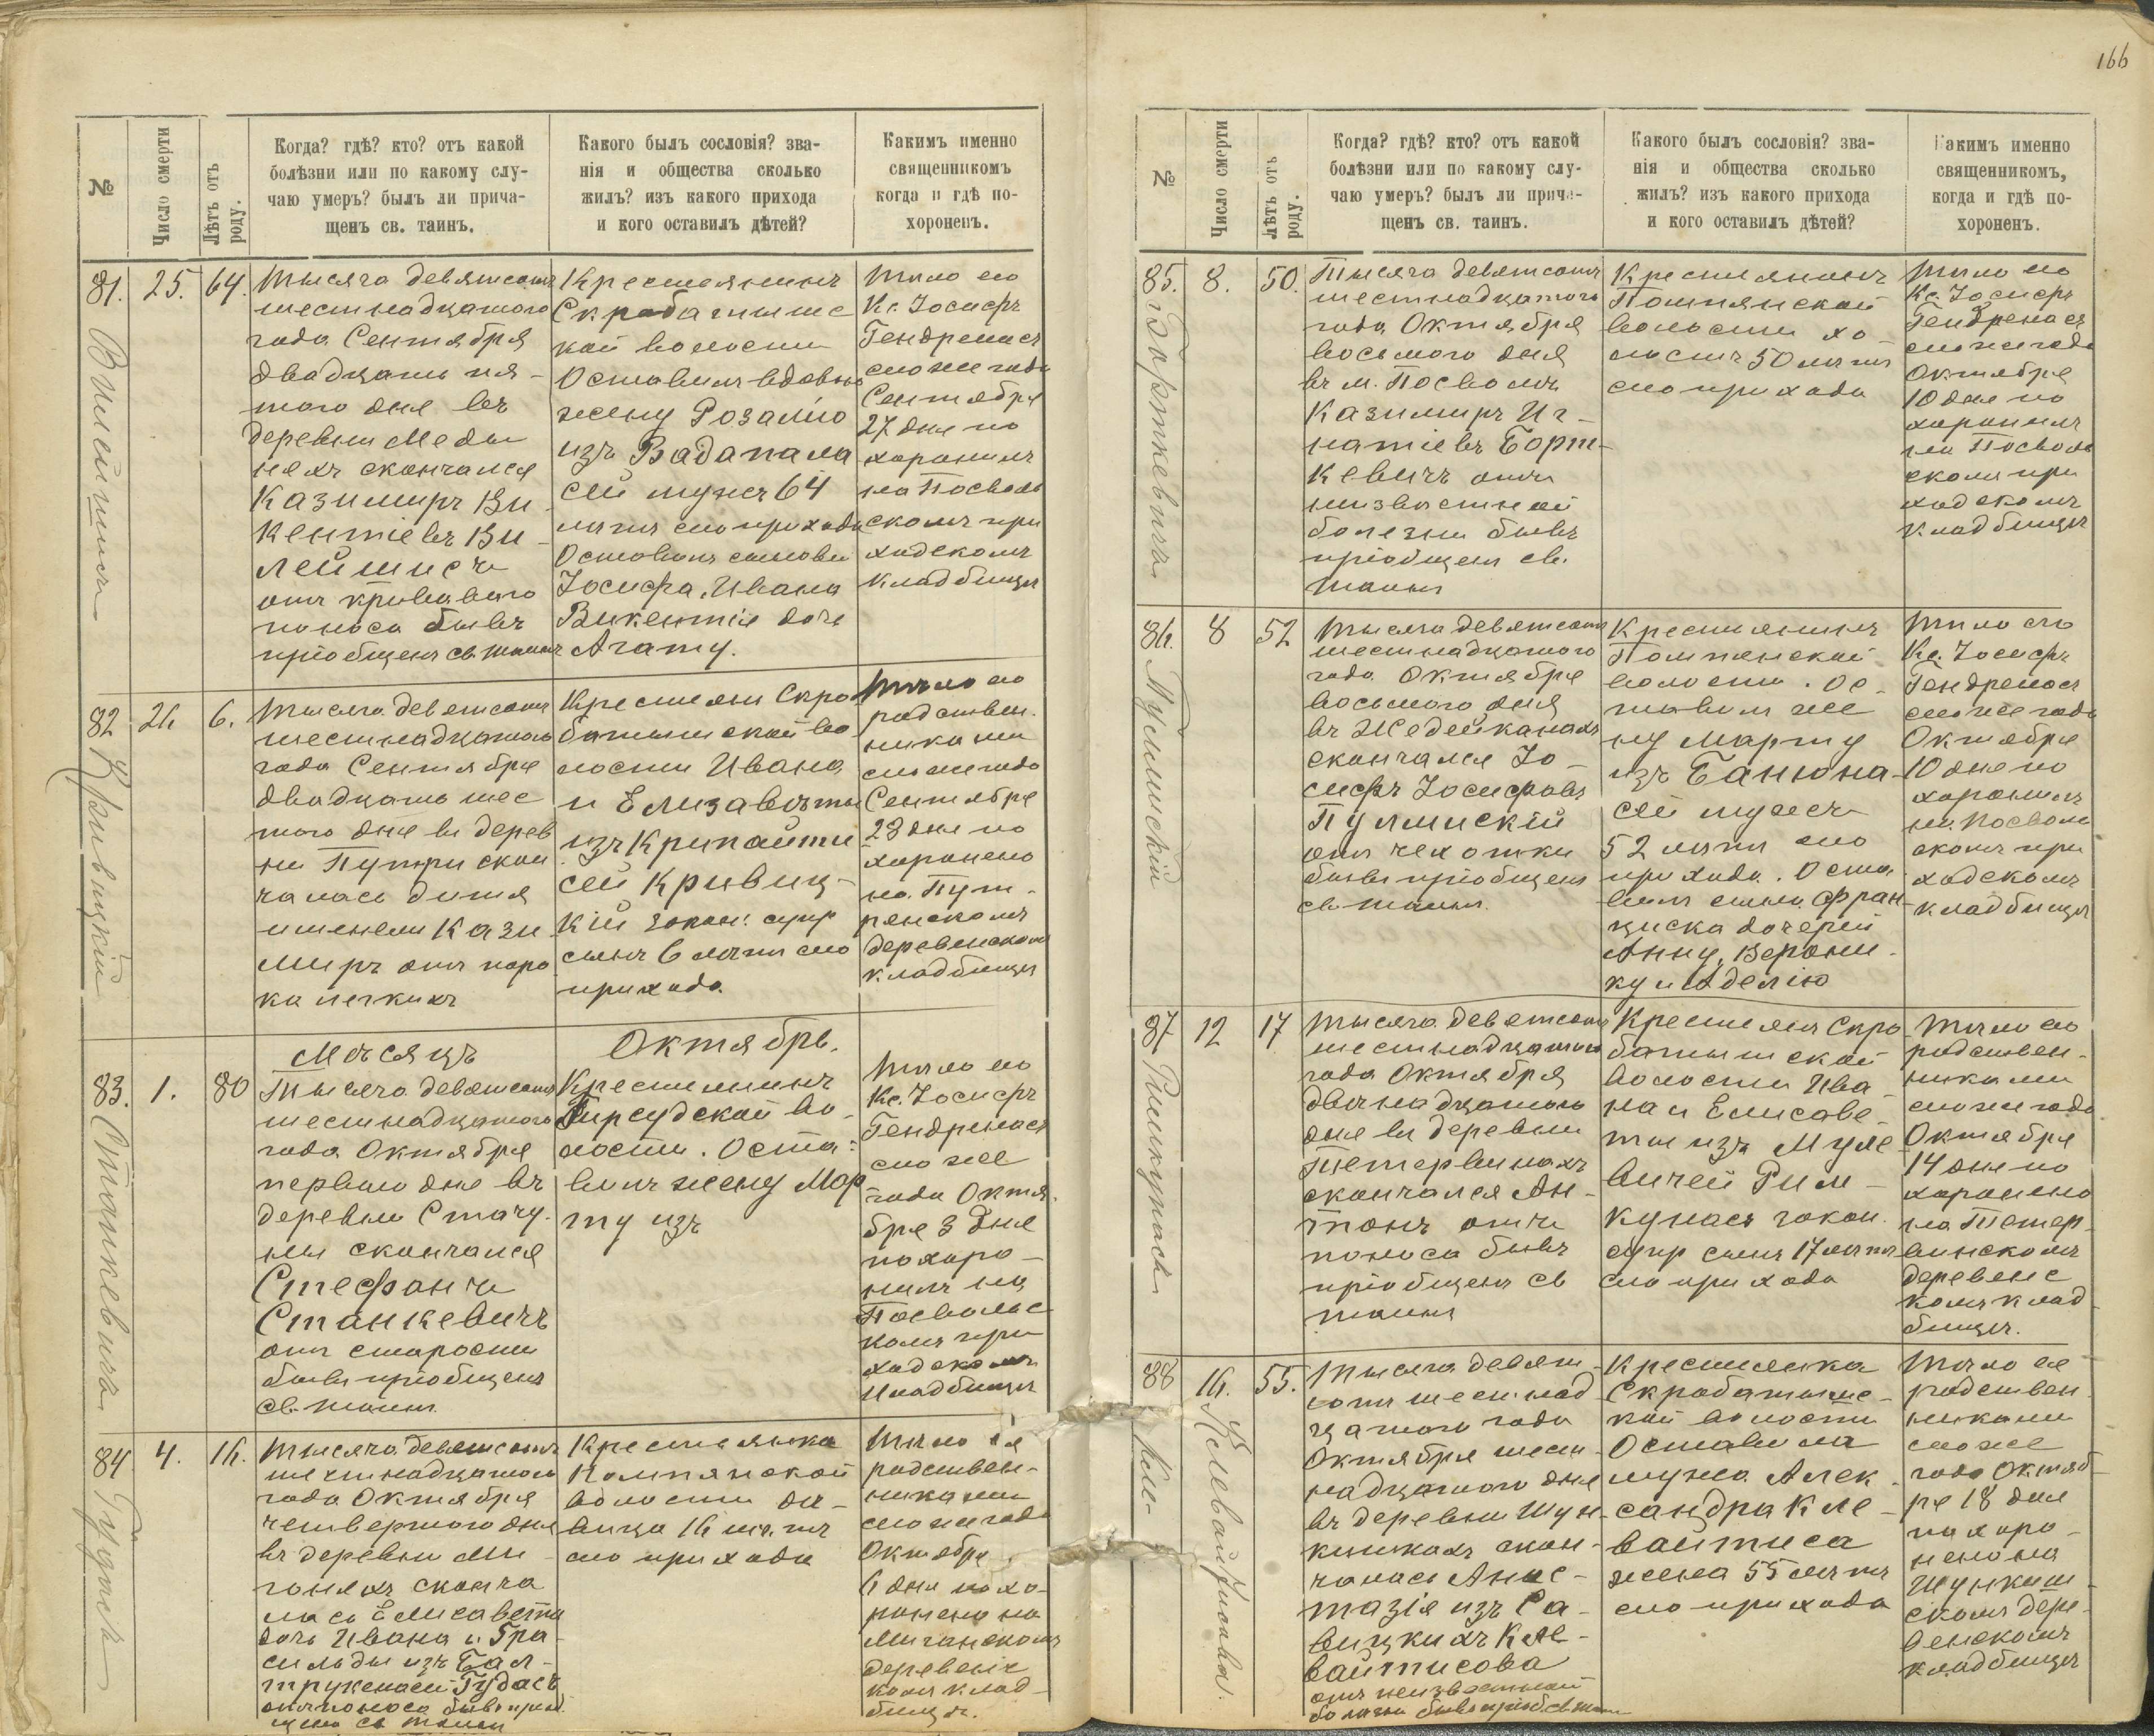 166
№
Число смерти
Лѣтъ отъ
роду.
Когда? гдѣ? кто? отъ какой
болѣзни или по какому слу-
чаю умеръ? былъ ли прича-
щенъ св. таинъ.
Какого былъ сословія? зва-
нія и общества сколько
жилъ? изъ какого прихода
и кого оставилъ дѣтей?
Какимъ именно
священникомъ
когда и гдѣ по-
хороненъ.
81.
Вилейшисъ
25.
64.
Тысяча девятсотъ
шестнадцатого
года Сентября
двадцать пя-
того дня въ
деревни Меды
няхъ скончался
Казимиръ Ви
кентіевъ Ви-
лейшисъ
отъ криваваго
поноса бывъ
пріобщенъ св. таинъ
Крестьянинъ
Скрабатишс
кой волости
Оставилъ вдовью
жену Розалію
изъ Вадапала
сей мужъ 64
лѣтъ сго прихода
Оставилъ сыновей
Іосифа, Ивана
Викентія дочь
Агату.
Тѣло его
Кс. Іосифъ
Гендренасъ
сего же года
Сентября
27 дня по
хоронилъ
на Посволь
скомъ при
ходскомъ
кладбищѣ
82
Кривицкій
26
6.
Тысяча девятсотъ
шестнадцатого
года Сентября
двадцать шес
того дня въ дерев
ни Путри скон
чалось дитя
именем Кази
миръ отъ поро
ка легкихъ
Крестьян Скро
батишской во
лости Ивана
и Елизаветы
изъ Крипайти
сей Кривиц-
кій закон: супр
сынъ 6 лѣтъ сго
прихода.
Тѣло его
родствен-
никами
сего же года
Сентября
28 дня по
хоронено
на Пут-
ренскомъ
деревенском
кладбищѣ
Мѣсяцъ
Октябрь.
83.
Станкевичъ
1.
80
Тысяча девятсотъ
шестнадцатого
года Октября
первого дня въ
деревни Стачу-
ны скончался
Стефанъ
Станкевичъ
отъ старости
бывъ пріобщенъ
св. таинъ.
Крестьянинъ
Гирсудской во-
лости. Оста-
вилъ жену Мар
ту изъ
Тѣло его
Кс. Іосифъ
Гендренасъ
сего же
года Октя-
бря 3 дня
похоро-
нилъ на
Посвольс
комъ при
ходскомъ
кладбищѣ
84
Гудасъ
4.
16.
Тысяча девятсотъ
шестнадцатого
года Октября
четвертого дня
въ деревни Ми-
гоняхъ сконча
лась Елисавета
дочь Ивана и Гра
сильды изъ Бал-
трукенасей Гудасъ
отъ поноса бывъ пріоб
щена св таинъ
Крестьянка
Помпянской
волости дѣ-
вица 16 лѣтъ
сго прихода
Тѣло ея
родствен-
никами
сего же года
Октября
6 дня похо-
ронено на
Миганскомъ
деревенс
комъ клад-
бищѣ.
№
Число смерти
Лѣтъ отъ
роду.
Когда? гдѣ? кто? отъ какой
болѣзни или по какому слу-
чаю умеръ? былъ ли приче-
щенъ св. таинъ.
Какого былъ сословія? зва-
нія и общества сколько
жилъ? изъ какого прихода
и кого оставилъ дѣтей?
Какимъ именно
священникомъ,
когда и гдѣ по-
хороненъ.
85.
Борткевичъ
8.
50.
Тысяча девятсотъ
шестнадцатого
года Октября
восьмого дня
въ м. Посволъ
Казимиръ Иг-
натіевъ Борт-
кевичъ отъ
неизвестной
болезни бывъ
пріобщенъ св.
таинъ
Крестьянинъ
Помпянской
волости хо-
лостъ 50 лѣтъ
сго прихода
Тѣло его
Кс. Іосифъ
Гендренасъ
сего же года
Октября
10 дня по
хоронилъ
на Посволь
скомъ при
ходскомъ
кладбищѣ
86.
Пулминскій
8
52
Тысяча девятсотъ
шестнадцатого
года Октября
восьмого дня
въ Жедейканахъ
скончался Іо-
сифъ Іосифовъ
Пулминскій
отъ чехотки
бывъ пріобщенъ
св. таинъ.
Крестьянинъ
Помпянской
волости. Ос-
тавилъ же
ну Марту
изъ Банюна-
сей мужъ
52 лѣтъ сго
прихода. Оста
вилъ сына Фран
циска дочерей
Анну, Верони-
ку и Аделію
Тѣло его
Кс. Іосифъ
Гендренасъ
сего же года
Октября
10 дня по
хоронилъ
на Посволь
скомъ при
ходскомъ
кладбищѣ
87
Римкунасъ
12
17
Тысяча девятсотъ
шестнадцатого
года Октября
двѣнадцатого
дня въ деревни
Тетервинахъ
скончался Ан-
тонъ отъ
поноса бывъ
пріобщенъ св
таинъ
Крестьянъ Скро
батишской
волости Ива
на и Елисаве-
ты изъ Муле
вичей Рим-
кунасъ закон.
супр сынъ 17 лѣтъ
сго прихода
Тѣло его
родствен-
никами
сего же года
Октября
14 дня по
хоронено
на Тетер-
винскомъ
деревенс
комъ клад-
бищѣ.
88
Клевайтисова.
16.
55.
Тысяча девят-
сотъ шестнад
цатого года
Октября шест-
надцатого дня
въ деревни Шун-
кишкахъ скон-
чалась Анас-
тазія изъ Са-
вицкихъ Кле-
вайтисова
отъ неизвестной
болезни бывъ пріоб. св таин
Крестьянка
Скрабатишс-
кой волости
Оставила
мужа Алек-
сандра Кле-
вайтиса
жена 55 лѣтъ
сго прихода
Тѣло ея
родствен-
никами
сего же
года Октяб-
ря 18 дня
похоро-
нено на
Шункиш-
скомъ дере-
венскомъ
кладбищѣ